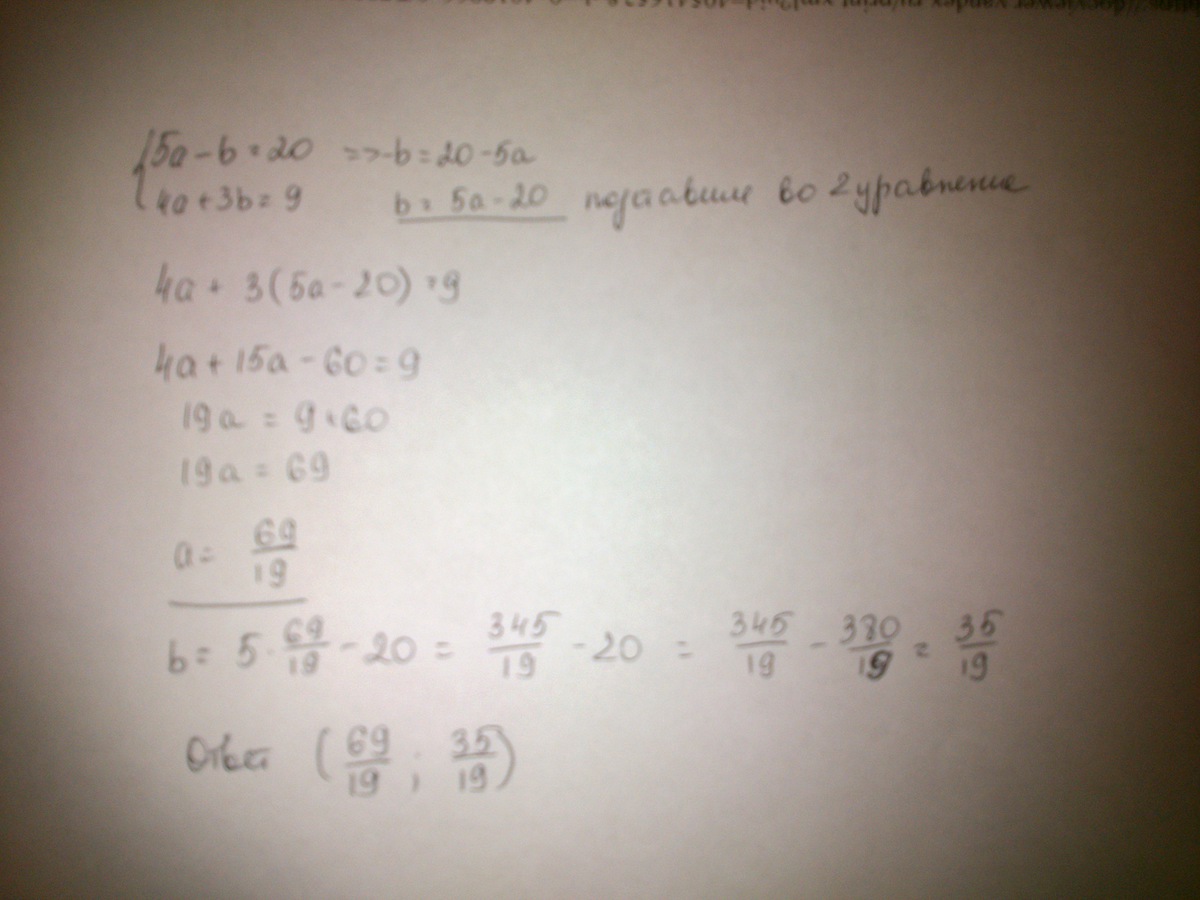 {5a - b = 20 => -b = 20 - 5a
4a + 3b = 9 b = 5a - 20 подставим во 2 уравнение
4a + 3(5a - 20) = 9
4a + 15a - 60 = 9
19a = 9 + 60
19a = 69
a = 69/19
b = 5 · 69/19 - 20 = 345/19 - 20 = 345/19 - 380/19 = 35/19
Ответ (69/19 ; 35/19)